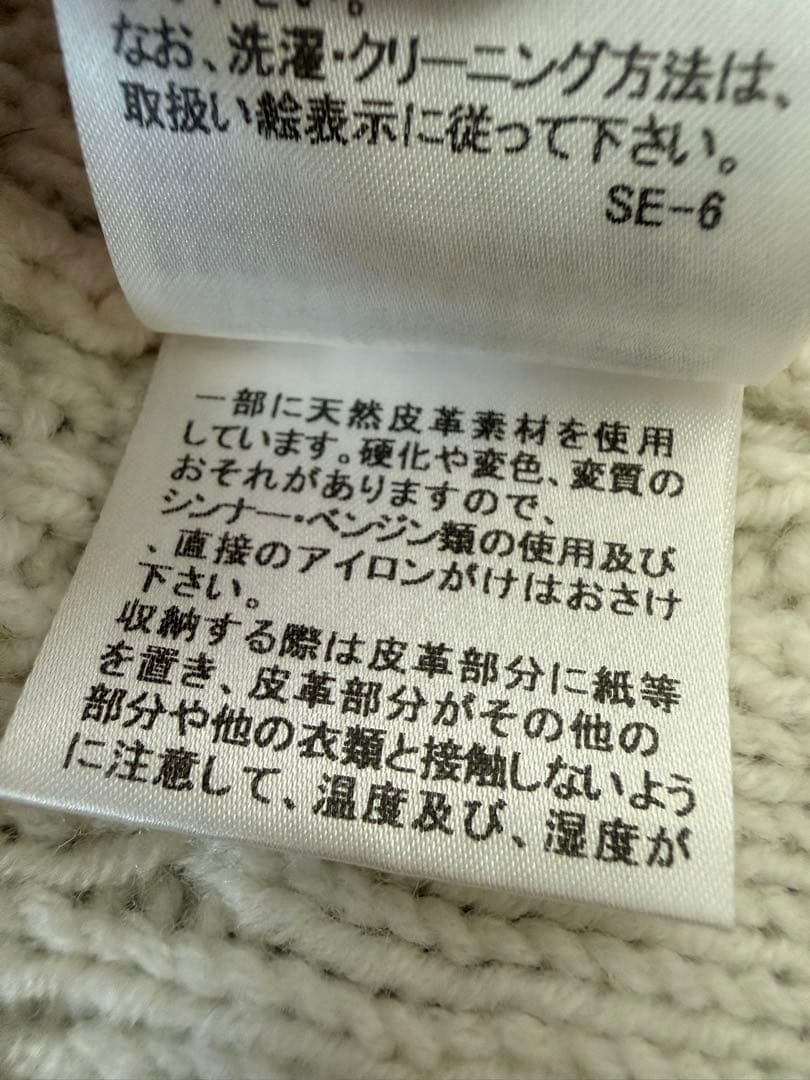 下さい。
なお、洗濯・クリーニング方法は、
取扱い絵表示に従って下さい。
SE-6
一部に天然皮革素材を使用
しています。硬化や変色、変質の
おそれがありますので、
シンナー・ベンジン類の使用及び
、直接のアイロンがけはおさけ
下さい。
収納する際は皮革部分に紙等
を置き、皮革部分がその他の
部分や他の衣類と接触しないよう
に注意して、温度及び、湿度が